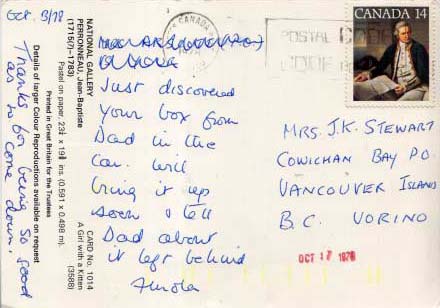 Oct. 3/78
Thanks for being so good
as to come down.
Details of larger Colour Reproductions available on request
Printed in Great Britain for the Trustees
Pastel on paper, 23¼ × 19⅝ ins (0.591 × 0.498 m)
(1715(?)–1783)
PERRONNEAU, Jean-Baptiste
NATIONAL GALLERY
CARD No. 1014
A Girl with a Kitten
(3588)
Just discovered
your box from
Dad in the
car. Will
bring it up
soon & tell
Dad about
it left behind
Finola
CANADA
POSTAL CODE
CODE
CANADA 14
MRS. J.K. STEWART
COWICHAN BAY PO
VANCOUVER ISLAND
B.C. VOR1NO
OCT 17 1978